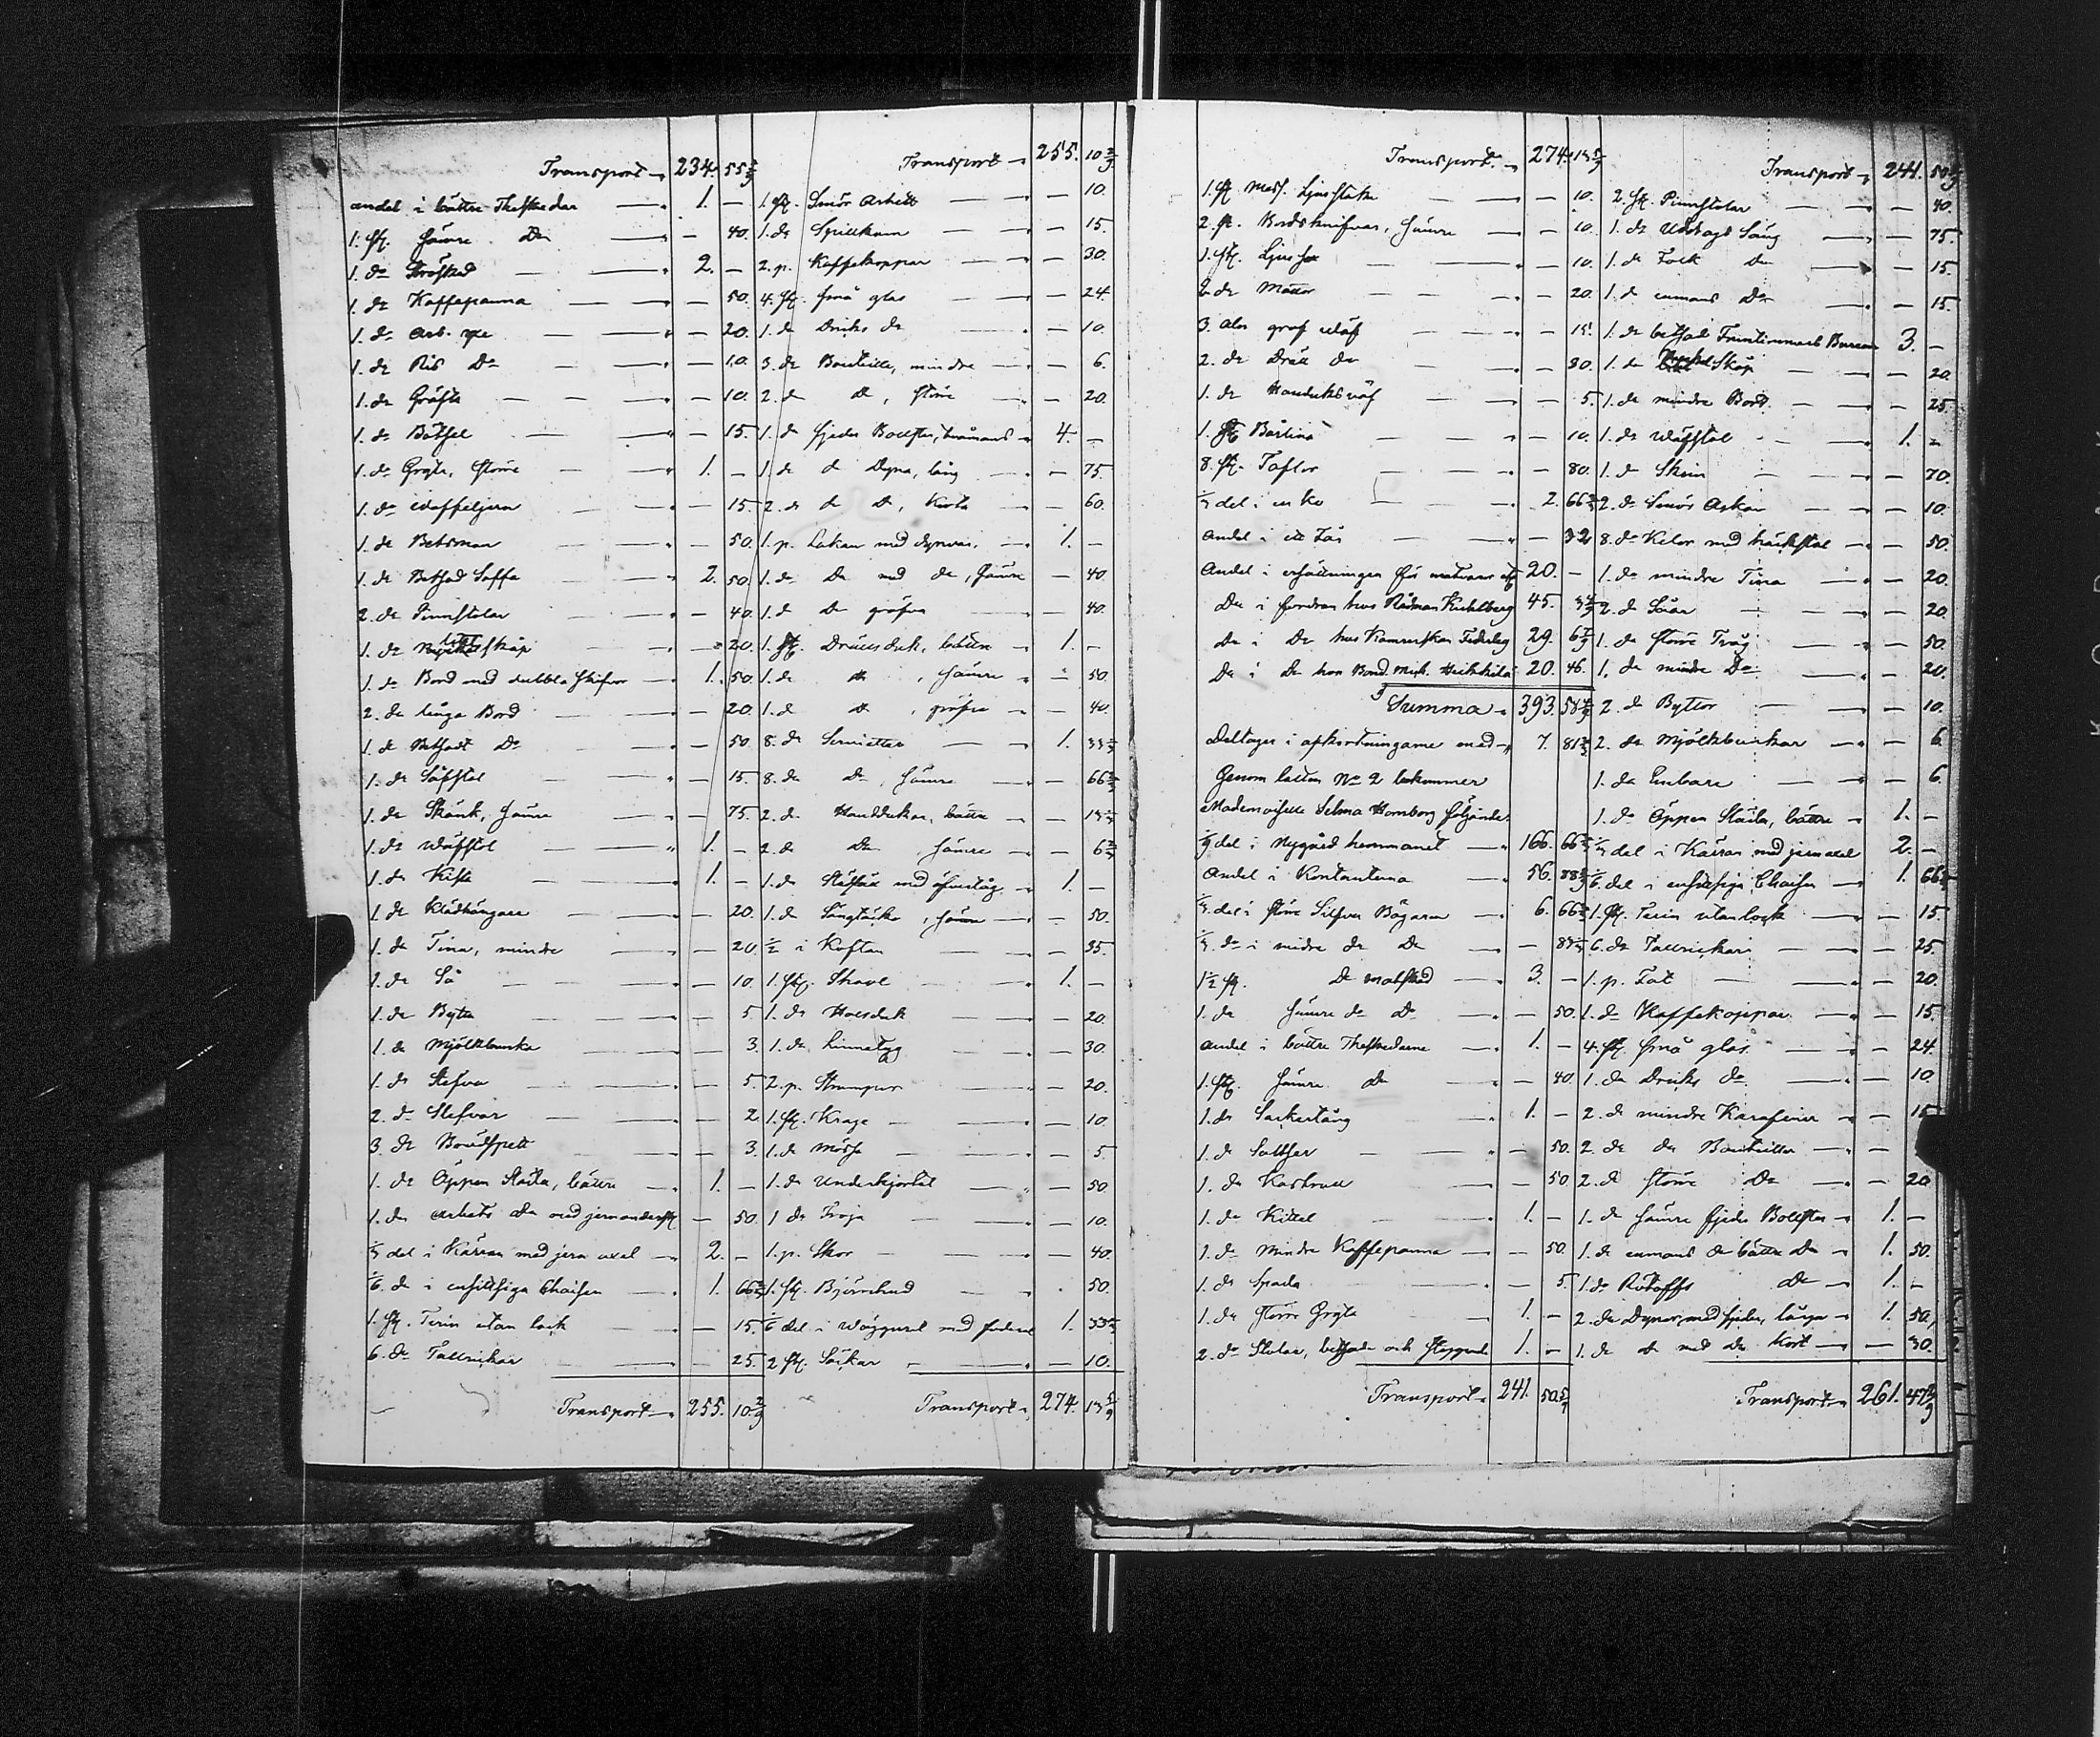 Transport 234. 55 5/9
andel i bättre Theskedar 1. —
1. st. sämre Do — 40.
1. do Ströskad 2. —
1. do Kaffepanna — 50.
1. do Arb. yxe — 20.
1. do Ris Do — 10.
1. do Gräfta — 10.
1. do Bötsel — 15.
1. do Gryta, större 1. —
1. do Waffeljern — 15.
1. do Betsman — 50.
1. do Betsad Soffa 2. 50.
2. do Pinnstolar — 40.
1. do skåp — 20.
1. do Bord med dubbla skifvor 1. 50.
2. do långa Bord — 20.
1. do Betsadt Do — 50.
1. do Länstol — 15.
1. do Skänk, sämre — 75.
1. do Wäfstol 1. —
1. do Kista 1. —
1. do Klädhängare — 20.
1. do Tina, mindre — 20.
1. do Så — 10.
1. do Bytta — 5.
1. do Mjölkbunka — 3.
1. do Stefva — 5.
2. do Slefvar — 2.
3. do Brödspett — 3.
1. do Öppen Släda, bättre 1. —
1. do Arbets do med jernunders — 50.
1/3 del i Kärran med jern axel 2. —
1/6 do i ensitsiga Chaisen 1. 66 2/3
1. st. Terin utan lock — 15.
6. do Tallrickar — 25.
Transport 255. 10 2/9
Transport 255. 10 2/9
1. st. Smör Askett — 10.
1. do Spillkum — 15.
2. p. Kaffekoppar — 30.
4. st. små glas — 24.
1. do Dricks do — 10.
3. do Bouteille, mindre — 6.
2. do do, större — 20.
1. do fjeder Bolster, tvåmans 4. —
1. do do Dyna, lång — 75.
2. do do do, Korta — 60.
1. p. Lakan med dynvar. 1. —
1. do Do med do, sämre — 40.
1. do Do gröfre — 40.
1. st. Drällsduk, bättre 1. —
1. do do, sämre — 50.
1. do do, gröfre — 40.
8. do Servietter 1. 33 1/3
8. do Do, sämre — 66 2/3
2. do Handdukar, bättre — 13 1/3
2. do Do sämre — 6 2/3
1. do med öfvertåg 1. —
1. do Sängtäcke, sämre — 50.
1/2 i Koftan — 35.
1. st. Shavl 1. —
1. do Halsduk — 20.
1. do Linnetyg — 30.
2. p. Strumpor — 20.
1. st. Krage — 10.
1. do Mössa — 5.
1. do Underkjortel — 50.
1 do Tröja — 10.
1. p. Skor — 40.
1. st. Björnhud 50.
1/6 del i Wäggur med foderal 1. 33 1/3
2 st. Säckar — 10.
Transport 274. 13 5/9
Transport 274. 13 5/9
1. st. Mess. Ljusstake — 10.
2. st. Bordsknifvar, sämre — 10.
1. st. Ljussax — 10.
2 do Mattor — 20.
3. aln grof wäf — 15.
2. do Dräll do — 30.
1. do Handduksväf — 5.
1. st. Bastina — 10.
8. st. Taflor — 80.
1/3 del i en Ko 2. 66 2/3
Andel i ett Får — 32
Andel i ersättningen för matvaror etc 20. —
Do i fordran hos Rådman Kuhlberg 45.
Do i Do hos Kamrerskan Federley 29. 6
Do i Do hos Bond. Mich. Heikkilä 20. 46.
Summa 393. 58
Deltager i afkortningarne med 7. 81
Genom lotten No 2 bekommer
Mademoiselle Selma Homborg följande:
1/9 del i Nygård hemmanet 166. 66 2/3
Andel i Kontanterna 56. 88
1/3. del i större Silfver Bägaren 6. 66 2/3
1/3. do i midre do Do — 83 1/3
1 1/2 st. Do matsked 3. —
1. do sämre do Do — 50.
andel i bättre Theskedarne 1. —
1. st. sämre Do — 40.
1. do Sockertång 1. —
1. do Saltser — 50.
1. do Kastrull — 50
1. do Kittel 1. —
1. do Mindre Kaffepanna — 50.
1. do Spada — 5.
1. do större Gryta 1. —
2. do Stolar, betsade och stoppade 1. —
Transport 241. 50 5/9
Transport 241. 50 5/9
2. st. Pinnstolar — 40.
1. do Utdrags Säng — 75.
1. do Folk Do — 15.
1. do enmans Do — 15.
1. do betsad Fruntimmers Burau 3. —
1. do Skåp — 20.
1. do mindre Bord — 25.
1. do Wäfstol 1. —
1. do Skrin — 70.
2. do Smör Askar — 10.
8. do Kilor med häckstol — 50.
1. do mindre Tina — 20.
2. do Såar — 20
1. do större Tråg — 50.
1. do mindre Do — 20.
2. do Byttor — 10.
2. do Mjölkbunkar — 6.
1. do Embare — 6.
1. do Öppen Släda, bättre 1. —
1/3 del i Kärran med jernaxel 2. —
1/6. del i ensitsiga Chaisen 1. 66 2/3
1. st. Terin utan lock — 15.
6. do Tallrickar — 25.
1. p. Fat — 20.
1. do Kaffekoppar — 15.
4. st. små glas — 24.
1. do Dricks do — 10.
2. do mindre Karafiner — 15
2. do do Bouteiller —
2. do större Do — 20
1. do sämre fjeder Bolster 1. —
1. do enmans do bättre Do 1. 50.
1. do Do 1. —
2. do Dynor med fjeder, långa 1. 50.
1. do do med do Kort — 30.
Transport 261. 47 2/9